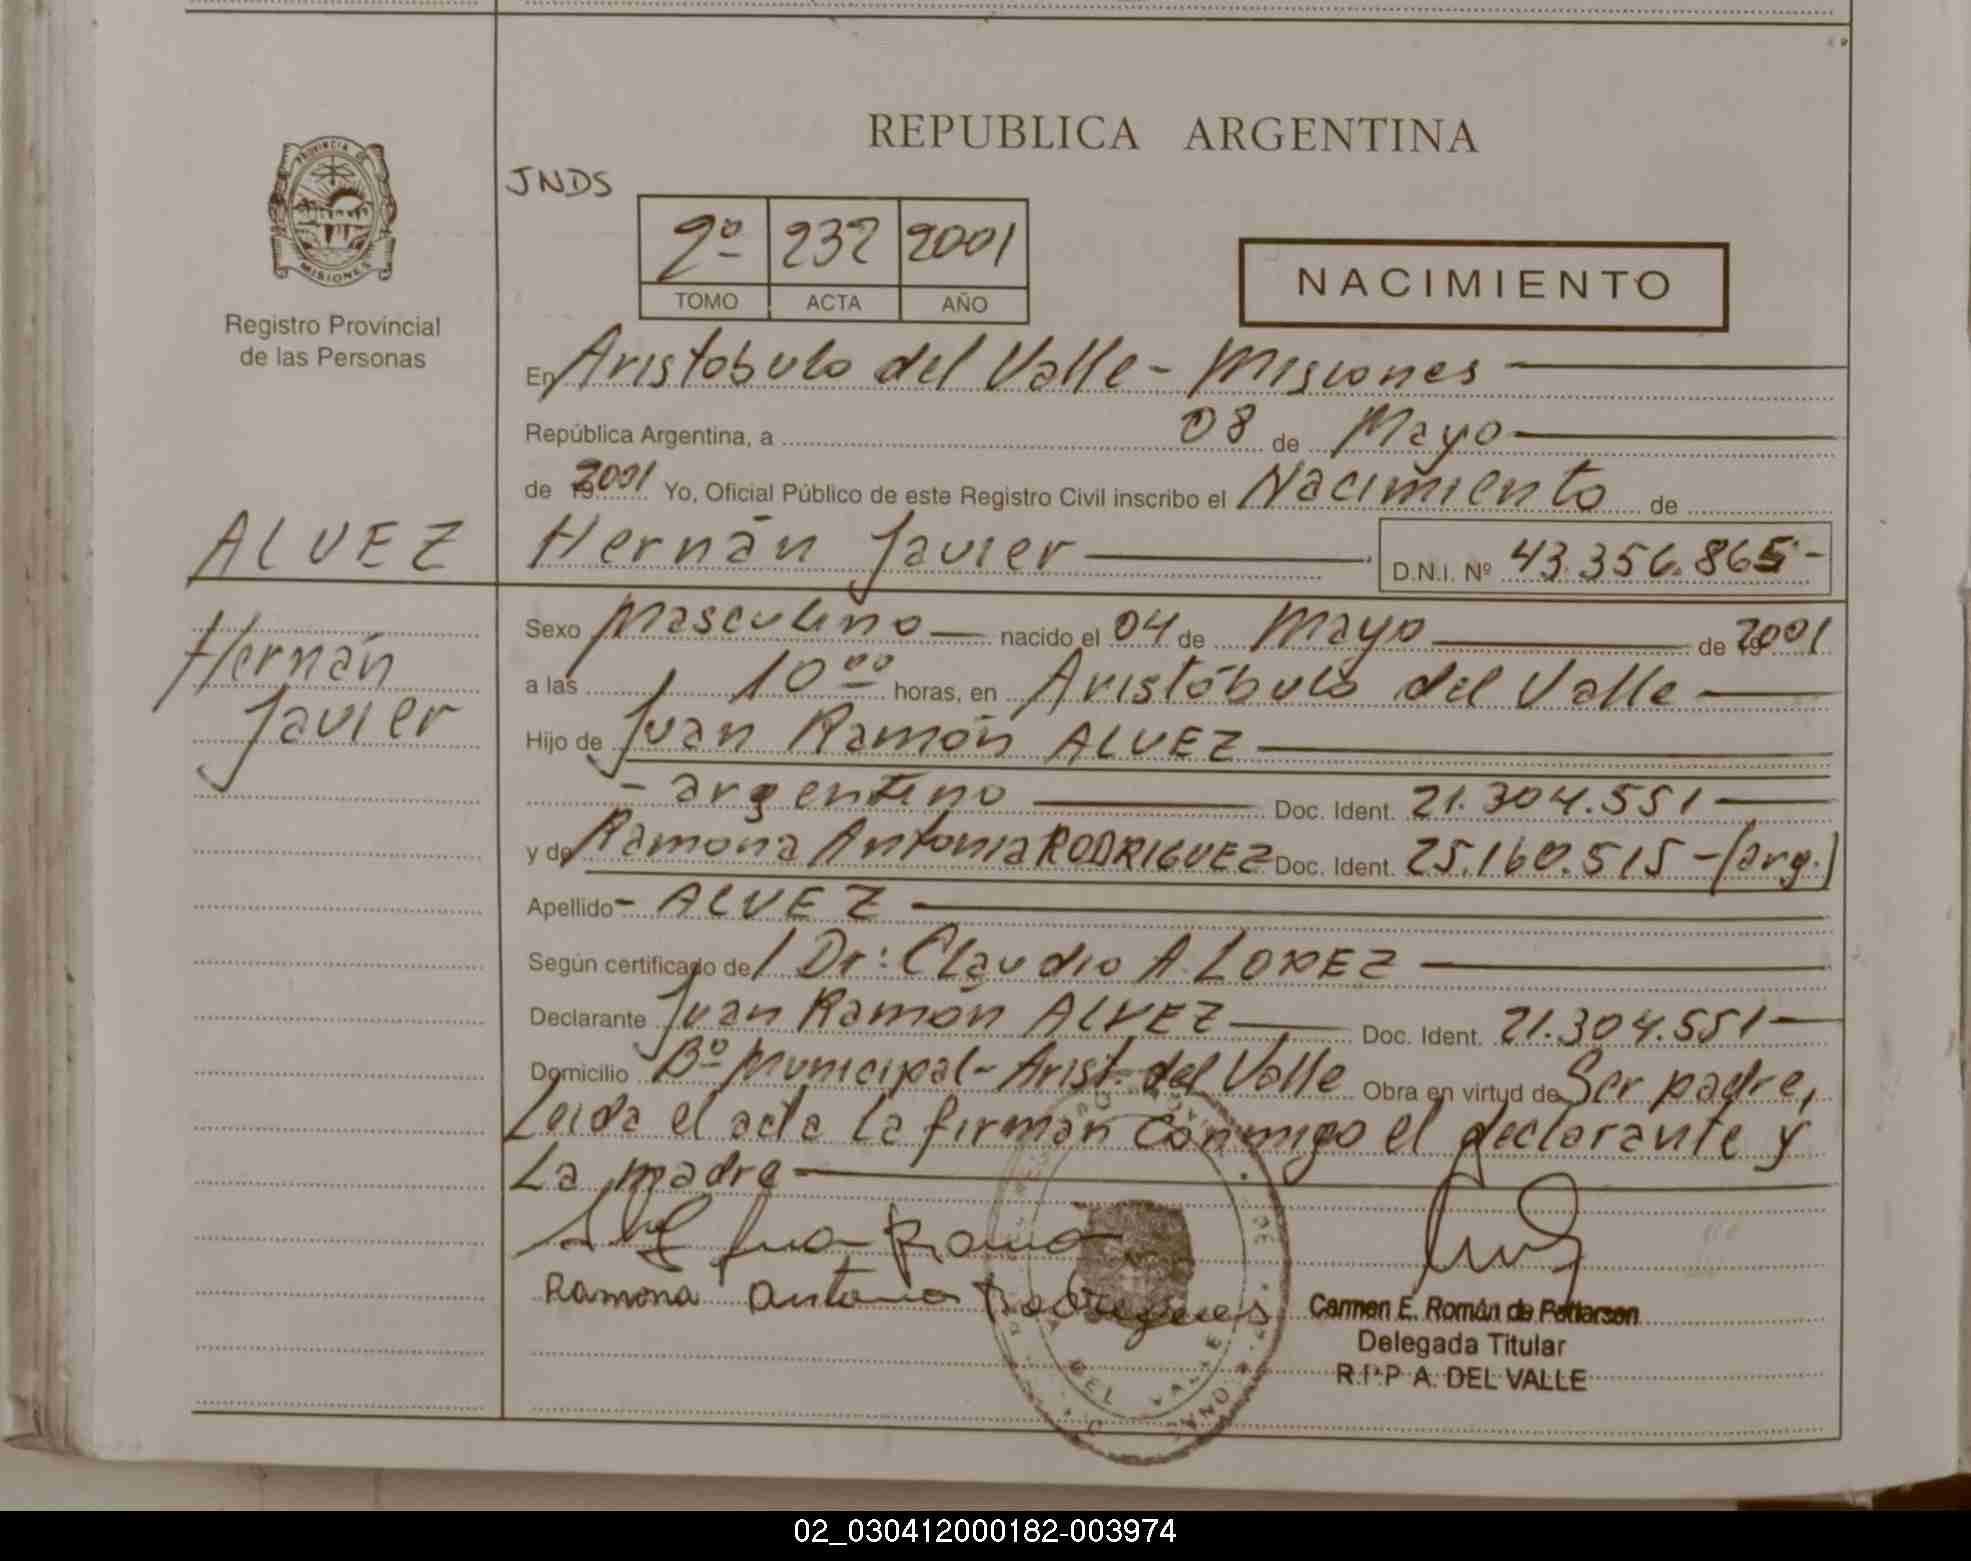 REPUBLICA ARGENTINA
PROVINCIA DE
MISIONES
Registro Provincial
de las Personas
JNDS
2º 232 2001
TOMO ACTA AÑO
NACIMIENTO
En Aristobulo del Valle - Misiones
República Argentina, a 08 de Mayo
de 2001 Yo, Oficial Público de este Registro Civil inscribo el Nacimiento de
ALVEZ Hernán Javier D.N.I. Nº 43.356.865-
Hernán
Javier
Sexo Masculino nacido el 04 de Mayo de 2001
a las 10 ºº horas, en Aristóbulo del Valle
Hijo de Juan Ramón ALVEZ
- argentino Doc. Ident. 21.304.551
y de Ramona Antonia RODRIGUEZ Doc. Ident. 25.160.515 - (arg.)
Apellido - ALVEZ
Según certificado de / Dr: Claudio A. LOPEZ
Declarante Juan Ramón ALVEZ Doc. Ident. 21.304.551
Domicilio Bº Municipal - Arist. del Valle Obra en virtud de Ser padre,
Leida el acta la firman conmigo el declarante y
La madre
Juan Ramon
Ramona Antonia Rodrigues
DEL VALLE
Carmen E. Román de Petterson
Delegada Titular
R.P.P A. DEL VALLE
02_030412000182-003974